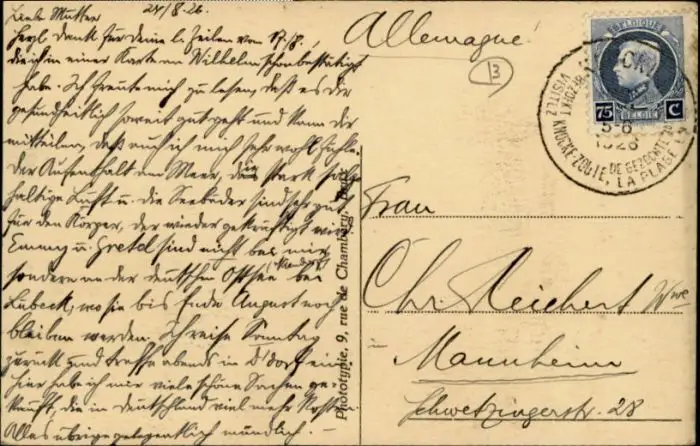 24/8.26.
Liebe Mutter
Herzl. Dank für Deine l. Zeilen vom 17/8.
die ich in einer Karte an Wilhelm schon bestätigt
habe. Ich freute mich zu lesen, daß es Dir
gesundheitlich soweit gut geht und kann Dir
mitteilen, daß auch ich mich sehr wohl fühle.
Der Aufenthalt am Meer, die stark salz-
haltige Luft u. die Seebäder sind sehr gut
für den Körper, der wieder gekräftigt wird
Emmy u. Gretel sind nicht bei mir
sondern an der deutschen Ostsee bei
Lübeck, wo sie bis Ende August noch
bleiben werden. Ich reise Sonntag
zurück und treffe abends in D'dorf ein.
Hier habe ich mir viele schöne Sachen ge-
kauft, die in Deutschland viel mehr kosten.
Alles übrige gelegentlich mündlich. –
Phototypie, 9, rue de Chambéry,
Allemagne
13
BELGIQUE
75 C
BELGIË
1926
VISITEZ KNOCKE-ZOUTE, LA PLAGE
DE GEZOCHTE
Frau
Chr. Reichert Wwe
Mannheim
Schwetzingerstr. 28